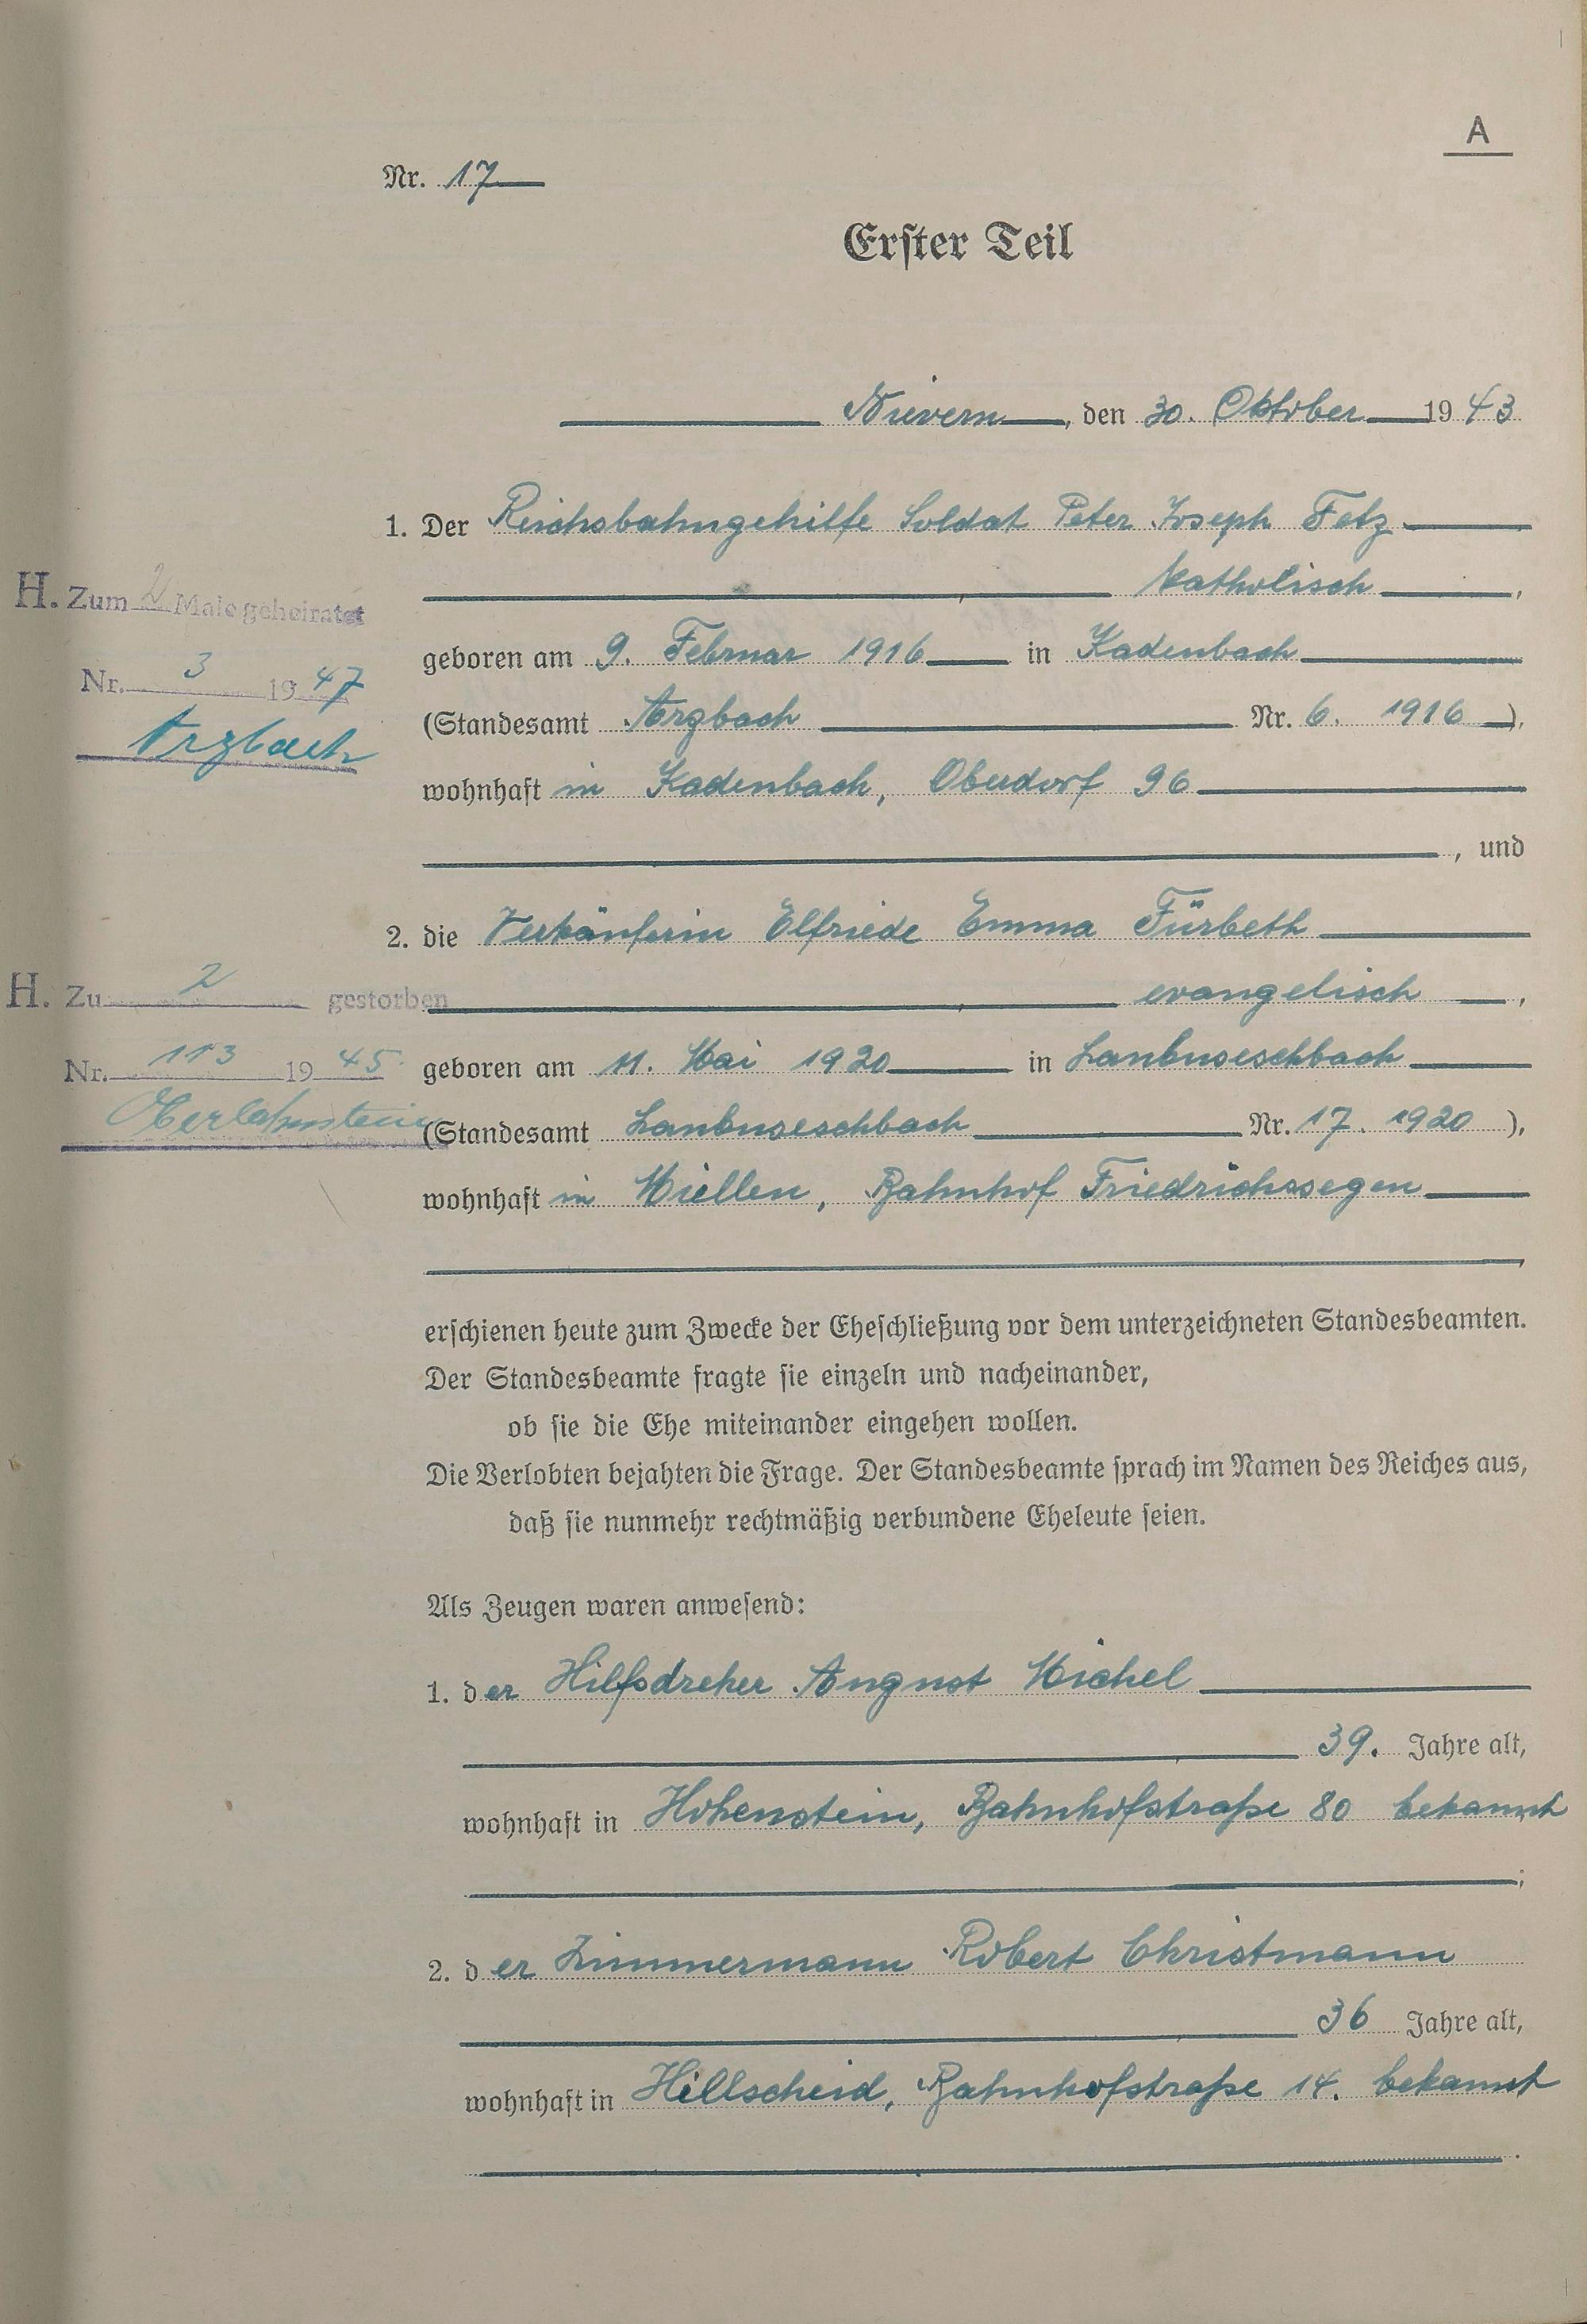 A
Nr. 17
Erster Teil
Nievern, den 30. Oktober 1943
1. Der Reichsbahngehilfe Soldat Peter Joseph Fetz
katholisch,
geboren am 9. Februar 1916 in Kadenbach
(Standesamt Arzbach Nr. 6. 1916),
wohnhaft in Kadenbach, Oberdorf 96
, und
H. Zum 2 Male geheiratet
Nr. 3 1947
Arzbach
2. die Verkäuferin Elfriede Emma Fürbeth
evangelisch,
geboren am 11. Mai 1920 in Laubuseschbach
(Standesamt Laubuseschbach Nr. 17. 1920),
wohnhaft in Miellen, Bahnhof Friedrichssegen
H. Zu 2 gestorben
Nr. 113 1945
Oberlahnstein
erschienen heute zum Zwecke der Eheschließung vor dem unterzeichneten Standesbeamten.
Der Standesbeamte fragte sie einzeln und nacheinander,
ob sie die Ehe miteinander eingehen wollen.
Die Verlobten bejahten die Frage. Der Standesbeamte sprach im Namen des Reiches aus,
daß sie nunmehr rechtmäßig verbundene Eheleute seien.
Als Zeugen waren anwesend:
1. der Hilfsdreher August Michel
39. Jahre alt,
wohnhaft in Hohenstein, Bahnhofstraße 80 bekannt
;
2. der Zimmermann Robert Christmann
36 Jahre alt,
wohnhaft in Hillscheid, Bahnhofstraße 14. bekannt
.